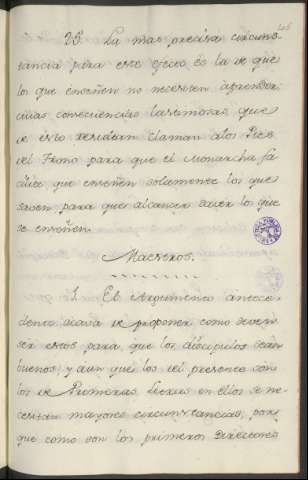 25. La mas precisa circuns-
tancia para este efecto es la de que
los que enseñen no necesiten aprender
cuias consecuencias lastimosas que
de esto resultan claman a los Pies
del Trono para que el Monarcha fa
que enseñen solamente los que
saven para que alcancen saver los que
se enseñen.
Maestros.
1. El Argumento antece-
dente acava de proponer como deven
ser estos para que los discipulos sean
buenos; y aun que los del presente son
los de Primeras Letras en ellos se ne-
cesitan mayores circunstancias, por
que como son los primeros Directores